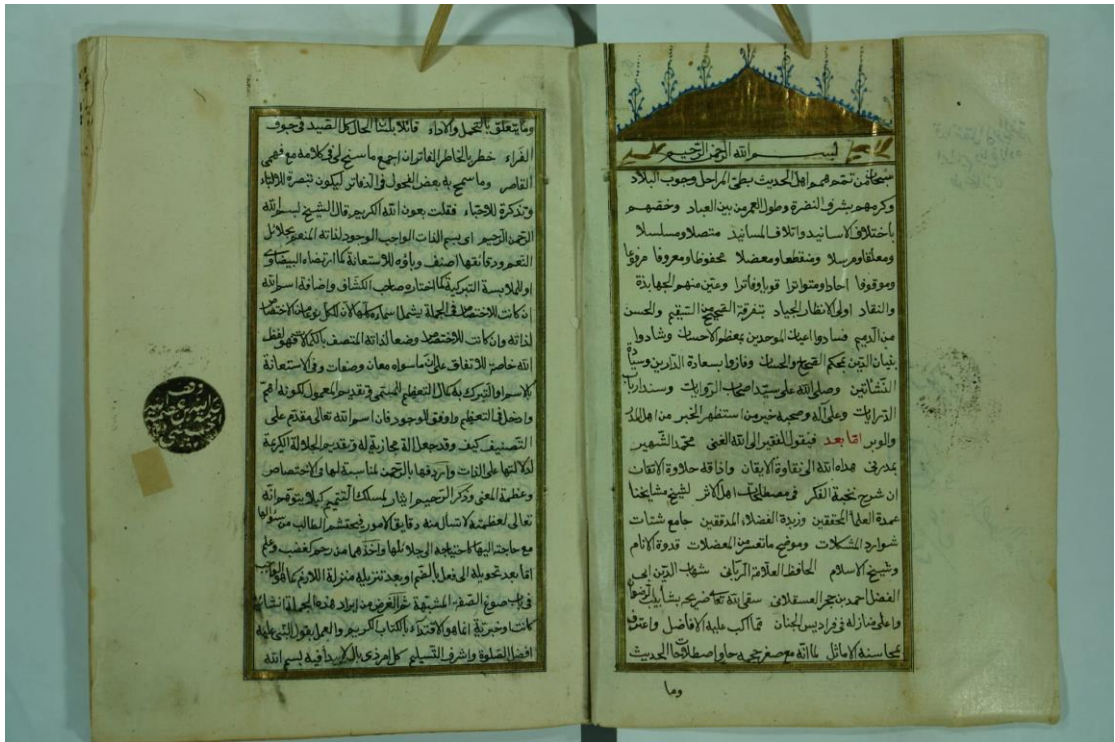 بسم الله الرحمن الرحيم
سبحان من تمم همم اهل الحديث بطي المراحل وجوب البلاد
وكرمهم بشرف النضرة وطول العمر من بين العباد وخصهم
باختلاف الاسانيد واتلاف المسانيد متصلا ومسلسلا
ومعلقا ومرسلا ومنقطعا ومعضلا محفوظا ومعروفا مرفوعا
وموقوفا احادا ومتواترا قويا وفاترا وعين منهم الجهابذة
والنقاد اولى الانظار الجياد بتفرقة الصحيح من السقيم والحسن
من الذميم فسادوا اعيان الموحدين بمعظم الاحسان وشادوا
بنيان الدين بمحكم الصحيح والحسان وفازوا بسعادة الدارين وسيادة
النشاتين وصلى الله على سيد اصحاب الروايات وسند ارباب
الدرايات وعلى آله وصحبه خير من استظهر الخبر من اهل المدر
والوبر اما بعد فيقول الفقير الى الله الغنى محمد الشهير
بمدرقى هداه الله الى نقاوة الايقان واذاقه حلاوة الاتقان
ان شرح نخبة الفكر فى مصطلحات اهل الاثر لشيخ مشايخنا
عمدة العلماء المحققين وزبدة الفضلاء المدققين جامع شتات
شوارد المشكلات وموضح ما تعسر من المعضلات قدوة الانام
وشيخ الاسلام الحافظ العلامة الربانى شهاب الدين ابى
الفضل احمد بن حجر العسقلانى سقى الله تعا ضريحه بشابيب الرضوان
واعلى منازله فى فراديس الجنان مما اكب عليه الافاضل واعترف
بمحاسنه الاماثل لما انه مع صغر حجمه حاو اصطلاحات الحديث
وما
وما يتعلق بالتحمل والاداء قائلا بلسان الحال كل الصيد فى جوف
الفراء خطر بالخاطر الفاتر ان اجمع ما سنح لى فى كلامه مع فهمى
القاصر وما سمح به بعض الفحول فى الدفاتر ليكون تبصرة للالباء
وتذكرة للاحباء فقلت بعون الله الكريم قال الشيخ بسم الله
الرحمن الرحيم اى بسم الذات الواجب الوجود لذاته المنعم بجلائل
النعم ودقائقها اصنف وباؤه للاستعانة كما ارتضاه البيضاوى
او للملابسة التبركية كما اختاره صاحب الكشاف واضافة اسم الله
ان كانت للاختصاص فى الجملة يشمل اسماءه كلها لان لكل نوعا من الاختصاص
لذاته وان كانت للاختصاص وضعا لذاته المتصف بالكمالات فهو لفظ
الله خاصة للاتفاق على ان ما سواه معان وصفات وفى الاستعانة
بالاسم او التبرك به كمال التعظيم للمسمى وتقديم المعمول لكونه اهم
وادخل فى التعظيم واوفق للوجود فان اسم الله تعالى مقدم على
التصنيف كيف وقد جعل الة مجازية له وتقديم الجلالة الكريمة
لدلالتها على الذات واردفها بالرحمن لمناسبته لها فى الاختصاص
وعظمة المعنى وذكر الرحيم ايثار لمسلك التتميم كيلا يتوهم انه
تعالى لعظمته لا تسأل منه دقايق الامور فيحتشم الطالب من سؤالها
مع حاجته اليها كاحتياجه الى جلائلها واخذهما من رحم كغضب وعلم
اما بعد تحويله الى فعل بالضم او بعد تنزيله منزلة اللازم كما هو الواجب
فى باب صوغ الصفة المشبهة ثم الغرض من ايراد هذه الجملة انشائية
كانت او خبرية انما هو الاقتداء بالكتاب الكريم والعمل بقول النبى عليه
افضل الصلوة واشرف التسليم كل امر ذى بال لا يبدأ فيه بسم الله